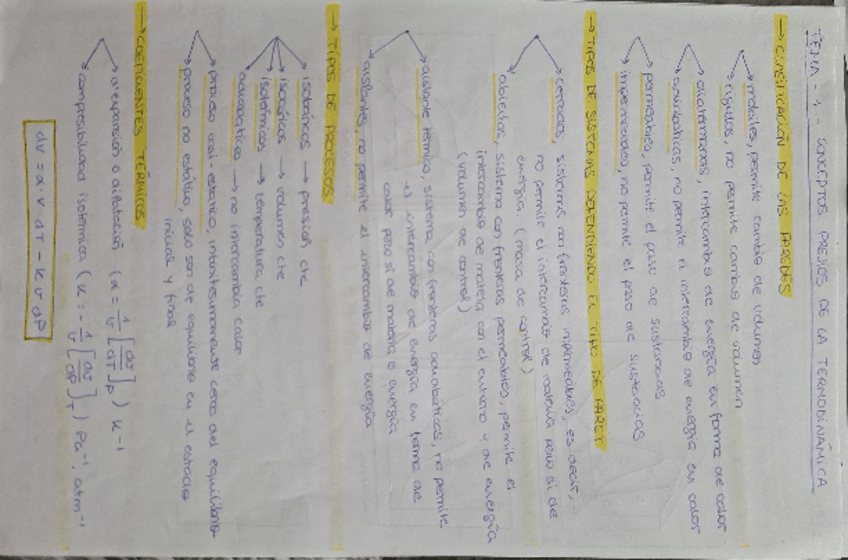 TEMA - 1 - CONCEPTOS PREVIOS DE LA TERMODINÁMICA
→ CLASIFICACIÓN DE LAS PAREDES
móviles, permite cambio de volumen
rígidas, no permite cambio de volumen
diatérmanas, intercambio de energía en forma de calor
adiabáticas, no permite el intercambio de energía en calor
permeables, permite el paso de sustancias
impermeables, no permite el paso de sustancias
→ TIPOS DE SISTEMAS DEPENDIENDO EL TIPO DE PARED
cerrados, sistemas con fronteras impermeables, es decir,
no permite el intercambio de materia pero si de
energía. (masa de control)
abiertos, sistema con fronteras permeables, permite el
intercambio de materia con el entorno y de energía
(volumen de control)
aislante térmico, sistema con fronteras adiabáticas, no permite
el intercambio de energía en forma de
calor pero si de materia o energía
aislantes, no permite el intercambio de energía
→ TIPOS DE PROCESOS
isobáricos → presión cte
isocóricos → volumen cte
isotérmicos → temperatura cte
adiabática → no intercambia calor
proceso casi-estático, infinitesimalmente cerca del equilibrio
proceso no estático, solo son de equilibrio en el estado
inicial y final
→ COEFICIENTES TÉRMICOS
expansión o dilatación (α = 1/v [dv/dT]p) K⁻¹
compresibilidad isotérmica (K = - 1/v [dv/dP]T) Pa⁻¹, atm⁻¹
dv = α · v dT - K v dP